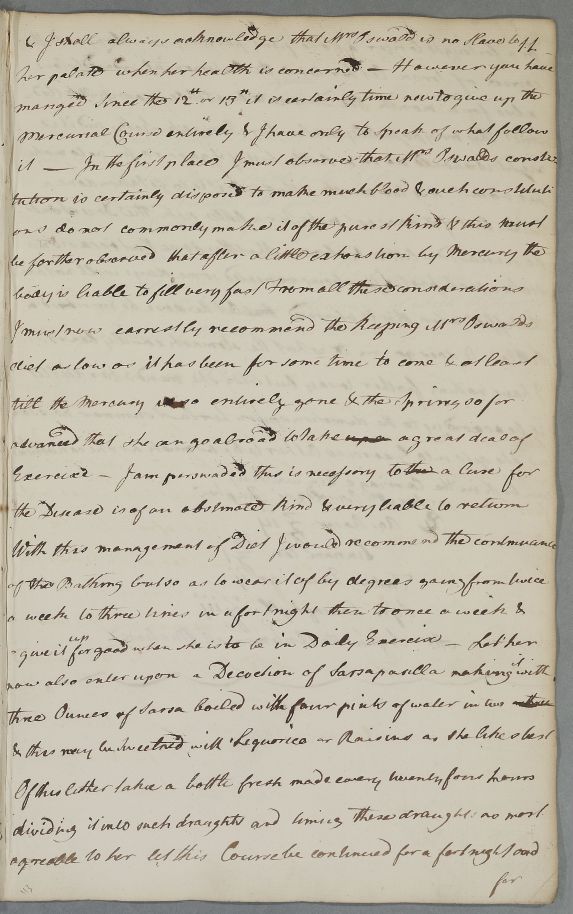 & I shall always acknowledge that Mrs Oswald is no Slave to
her palate when her health is concerned — However you have
manged since the 12th or 13th it is certainly time now to give up the
Mercurial Course entirely & I have only to speak of what follow
it — In the first place I must observe that Mrs Oswalds consti-
tution is certainly disposed to make much blood & such constituti
ons do not commonly make it of the purest kind & this must
be farther observed that after a little exhaustion by Mercury the
body is liable to fill very fast From all these considerations
I must now earnestly recommend the keeping Mrs Oswalds
diet as low as it has been for some time to come & at least
till the Mercury is so entirely gone & the Spring so far
advanced that she can go abroad to take a great deal of
Exercise — I am persuaded this is necessary to a Cure for
the Disease is of an obstinate kind & very liable to return
With this management of Diet I would recommend the continuance
of the Bathing but so as to wear it of by degrees going from twice
a week to three times in a fortnight then to once a week &
give it up for good when she is to be in Daily Exercise — Let her
now also enter upon a Decoction of Sarsaparilla making it with
three Ounces of Sarsa boiled with four pints of water in two
& this may be sweetned with Liquorice or Raisins as she likes best
Of this let her take a bottle fresh made every twenty four hours
dividing it into such draughts and timing these draughts as most
agreeable to her let this Course be continued for a fortnight and
for